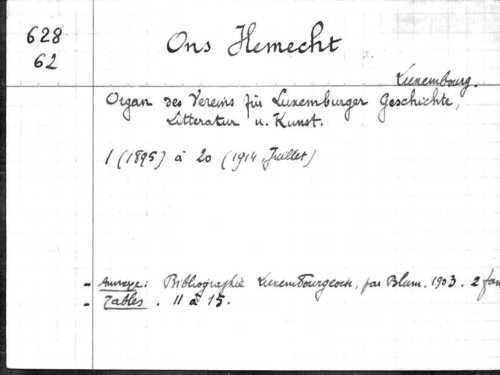 628
62
Ons Hemecht
Luxembourg.
Organ des Vereins für Luxemburger Geschichte,
Litteratur u. Kunst.
1 (1895) à 20 (1914 Juillet)
- Annexe: Bibliographie Luxembourgeoise, par Blum. 1903. 2 fas
- Tables. 11 à 15.